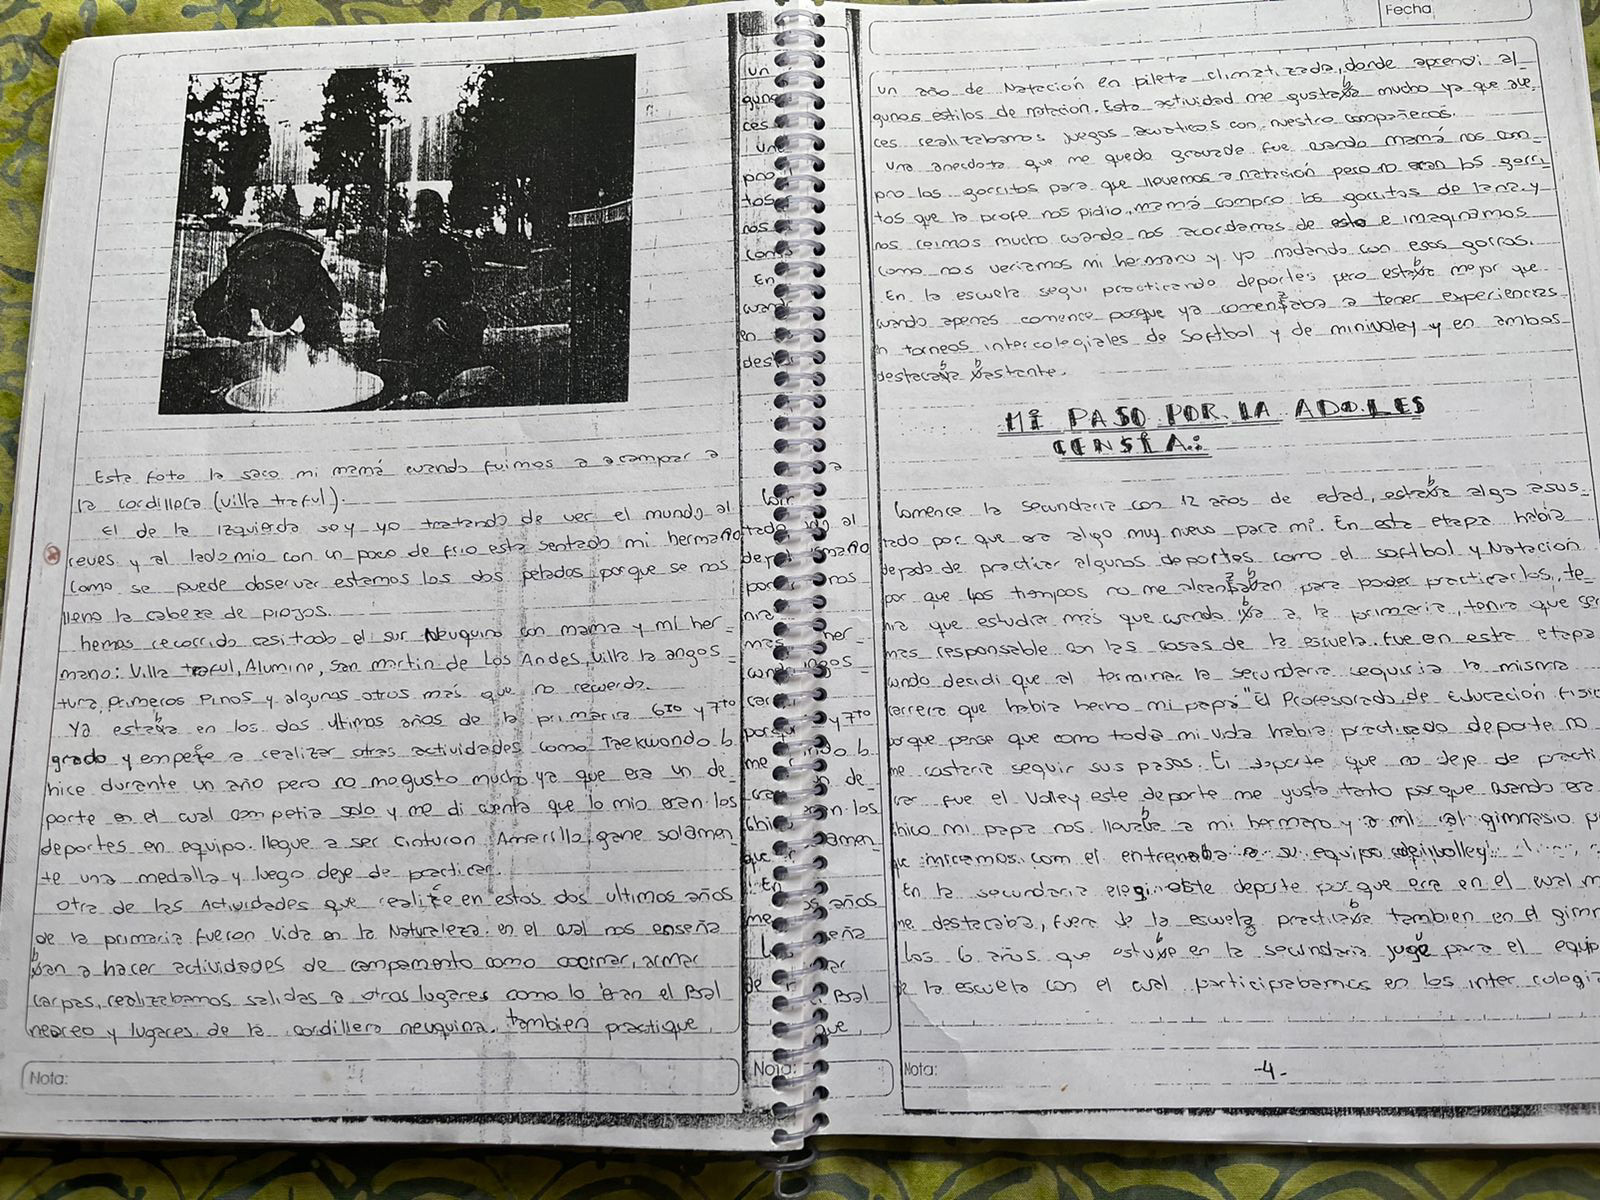 Esta foto la saco mi mamá cuando fuimos a acampar a
la cordillera (villa traful).
El de la izquierda soy yo tratando de ver el mundo al
reves y al lado mio con un poco de frio esta sentado mi hermano
como se puede observar estamos los dos pelados porque se nos
lleno la cabeza de piojos.
hemos recorrido casi todo el sur Neuquino con mama y mi her-
mano: Villa traful, Alumine, san martin de Los Andes, Villa la angos-
tura, Primeros Pinos y algunos otros más que no recuerdo.
Ya estaba en los dos ultimos años de la primaria 6to y 7to
grado y empece a realizar otras actividades como Taekwondo
hice durante un año pero no me gusto mucho ya que era un de-
porte en el cual competia solo y me di cuenta que lo mio eran los
deportes en equipo. llegue a ser cinturon Amarillo, gane solamen-
te una medalla y luego deje de practicar.
Otra de las Actividades que realice en estos dos ultimos años
de la primaria fueron Vida en la Naturaleza en el cual nos enseña
ban a hacer actividades de campamento como cocinar, armar
carpas, realizabamos salidas a otros lugares como lo eran el Bal
neareo y lugares de la cordillera neuquina. tambien practique
Nota:
Nota:
Fecha
un año de Natación en pileta climatizada, donde aprendi al-
gunos estilos de natacion. Esta actividad me gustaba mucho ya que ave
ces realizabamos juegos acuaticos con nuestro compañeros.
Una anecdota que me quedo gravada fue cuando mamá nos com-
pro los gorritos para que llevemos a natación pero no eran los gorri-
tos que la profe nos pidio, mamá compro los gorritos de lana y
nos reimos mucho cuando nos acordamos de esto e imaginamos
como nos veriamos mi hermano y yo nadando con esos gorros.
En la escuela segui practicando deportes pero estaba mejor que
cuando apenas comence porque ya comenzaba a tener experiencias
n torneos intercolegiales de Softbol y de minivoley y en ambos
destacaba bastante.
MI PASO POR LA ADOLES
CENSIA:
Comence la secundaria con 12 años de edad, estaba algo asus-
tado por que era algo muy nuevo para mi. En esta etapa habia
dejado de practicar algunos deportes como el softbol y Natación
por que los tiempos no me alcanzaban para poder practicarlos, te-
nia que estudiar más que cuando iba a la primaria, tenia que ser
mas responsable con las cosas de la escuela. fue en esta etapa
cuando decidi que al terminar la secundaria seguiria la misma
carrera que habia hecho mi papa "El Profesorado de Educación Fisic
porque pense que como toda mi vida habia practicado deporte no
me costaria seguir sus pasos. El deporte que no deje de practi
car fue el Volley este deporte me gusta tanto porque cuando era
chico mi papa nos llevaba a mi hermano y a mi al gimnasio p
que miremos com el entrenaba a su equipo
En la secundaria elegi este deporte por que era en el cual m
me destacaba, fuera de la escuela practicaba tambien en el gimn
los 6 años que estuve en la secundaria jugé para el equip
de la escuela con el cual participabamos en los inter cologia
Nota:
-4-